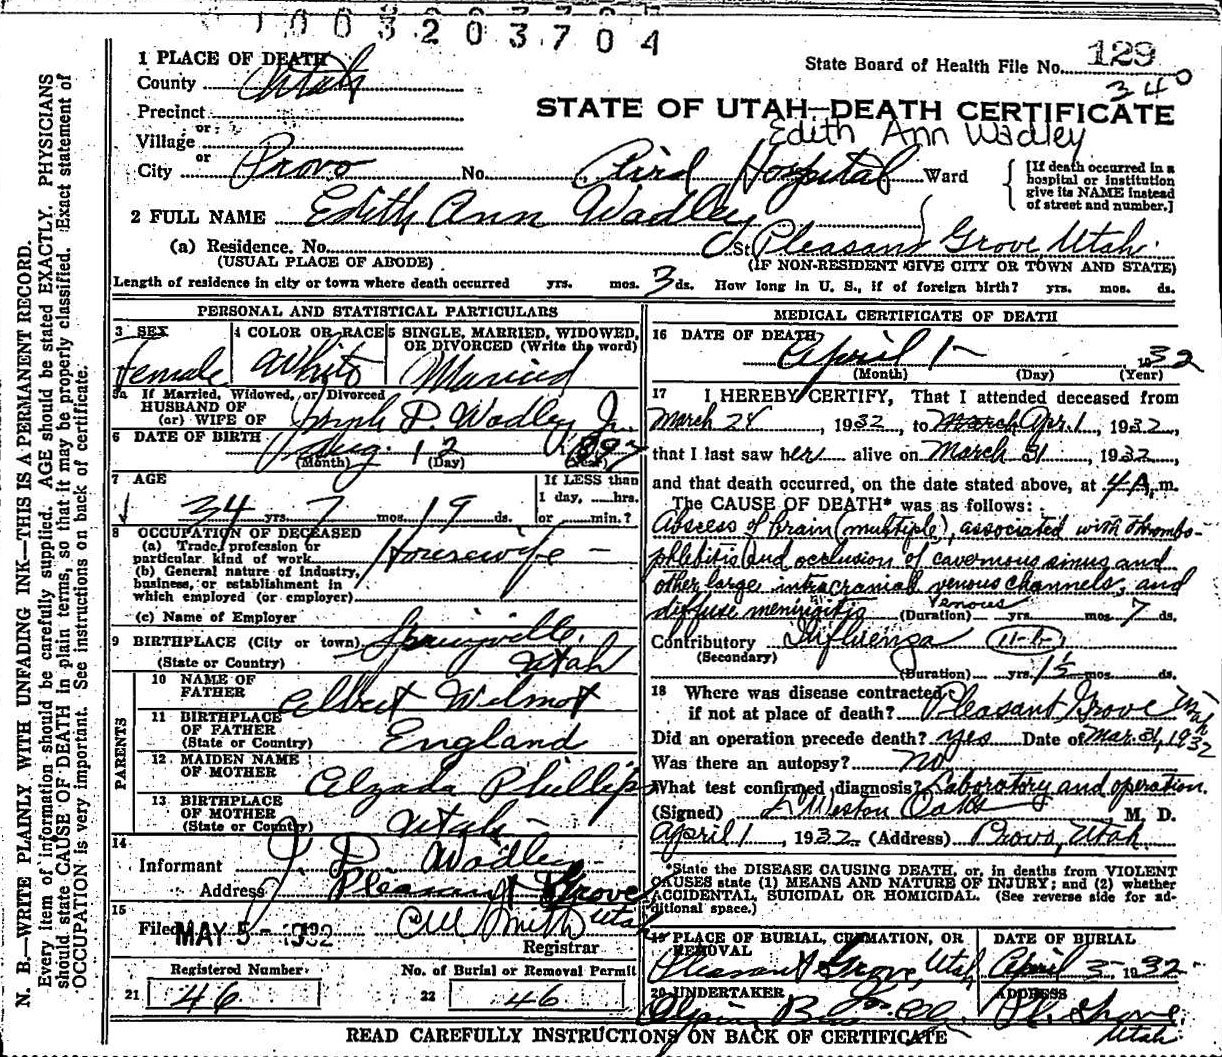 1003203704
1 PLACE OF DEATH
County Utah
State Board of Health File No. 129
340
Precinct
STATE OF UTAH—DEATH CERTIFICATE
or
Edith Ann Wadley
Village
or
City Provo No. Aird Hospital Ward
[If death occurred in a hospital or institution give its NAME instead of street and number.]
2 FULL NAME Edith Ann Wadley
(a) Residence. No. St. Pleasant Grove, Utah.
(USUAL PLACE OF ABODE) (IF NON-RESIDENT GIVE CITY OR TOWN AND STATE)
Length of residence in city or town where death occurred yrs. mos. 3 ds. How long in U. S., if of foreign birth? yrs. mos. ds.
PERSONAL AND STATISTICAL PARTICULARS
3 SEX
Female
4 COLOR OR RACE
White
5 SINGLE, MARRIED, WIDOWED, OR DIVORCED (Write the word)
Married
5a If Married, Widowed, or Divorced
HUSBAND OF
(or) WIFE OF Joseph D. Wadley Jr.
6 DATE OF BIRTH Aug. 12 1897
(Month) (Day) (Year)
7 AGE
34 yrs. 7 mos. 19 ds.
If LESS than
1 day, ....hrs.
or ....min.?
8 OCCUPATION OF DECEASED
(a) Trade, profession or
particular kind of work Housewife –
(b) General nature of industry,
business, or establishment in
which employed (or employer)
(c) Name of Employer
9 BIRTHPLACE (City or town) Springville,
(State or Country) Utah
PARENTS
10 NAME OF
FATHER Albert Wilmot
11 BIRTHPLACE
OF FATHER
(State or Country) England
12 MAIDEN NAME
OF MOTHER Alzada Phillips
13 BIRTHPLACE
OF MOTHER
(State or Country) Utah
14
Informant J. D. Wadley
Address Pleasant Grove
Utah
15
Filed MAY 5 - 1932
Registrar
Registered Number
21 46
No. of Burial or Removal Permit
22 46
MEDICAL CERTIFICATE OF DEATH
16 DATE OF DEATH
April 1– 1932
(Month) (Day) (Year)
17 I HEREBY CERTIFY, That I attended deceased from
March 28, 1932, to March Apr. 1, 1932,
that I last saw her alive on March 31, 1932,
and that death occurred, on the date stated above, at 4 A. m.
The CAUSE OF DEATH* was as follows:
Abscess of brain (multiple), associated with thrombo-
phlebitis and occlusion of cavernous sinus and
other large intracranial venous channels, and
diffuse meningitis (Duration) yrs. mos. 7 ds.
Venous
Contributory Influenza 11-b
(Secondary)
(Duration) yrs. 1½ mos. ds.
18 Where was disease contracted
if not at place of death? Pleasant Grove Utah
Did an operation precede death? yes Date of Mar. 31, 1932
Was there an autopsy? no
What test confirmed diagnosis? Laboratory and operation.
(Signed) L Weston Oaks M. D.
April 1, 1932. (Address) Provo, Utah.
*State the DISEASE CAUSING DEATH, or, in deaths from VIOLENT
CAUSES state (1) MEANS AND NATURE OF INJURY; and (2) whether
ACCIDENTAL, SUICIDAL OR HOMICIDAL. (See reverse side for ad-
ditional space.)
19 PLACE OF BURIAL, CREMATION, OR
REMOVAL
Pleasant Grove, Utah
DATE OF BURIAL
April 3– 1932
20 UNDERTAKER
ADDRESS
Pl. Grove,
Utah.
READ CAREFULLY INSTRUCTIONS ON BACK OF CERTIFICATE
N. B.—WRITE PLAINLY WITH UNFADING INK—THIS IS A PERMANENT RECORD.
Every item of information should be carefully supplied. AGE should be stated EXACTLY. PHYSICIANS
should state CAUSE OF DEATH in plain terms, so that it may be properly classified. Exact statement of
OCCUPATION is very important. See instructions on back of certificate.